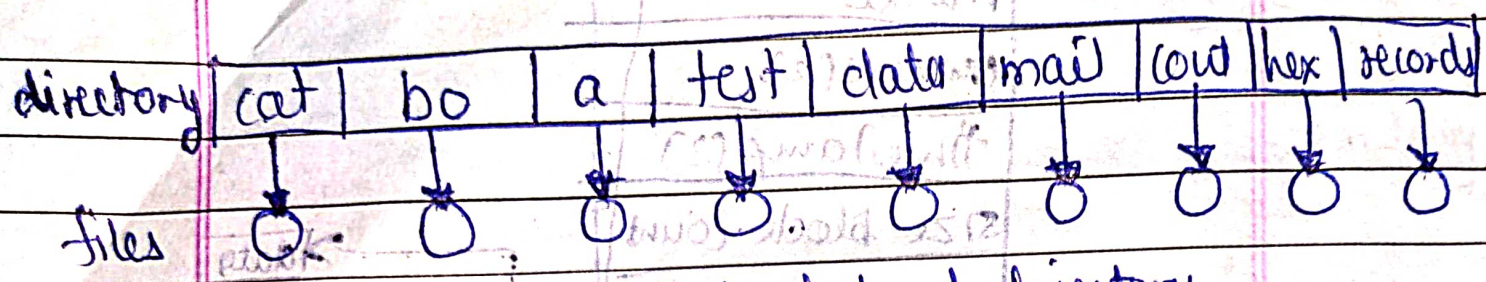 directory cat bo a test data mail cout hex records
files
directory